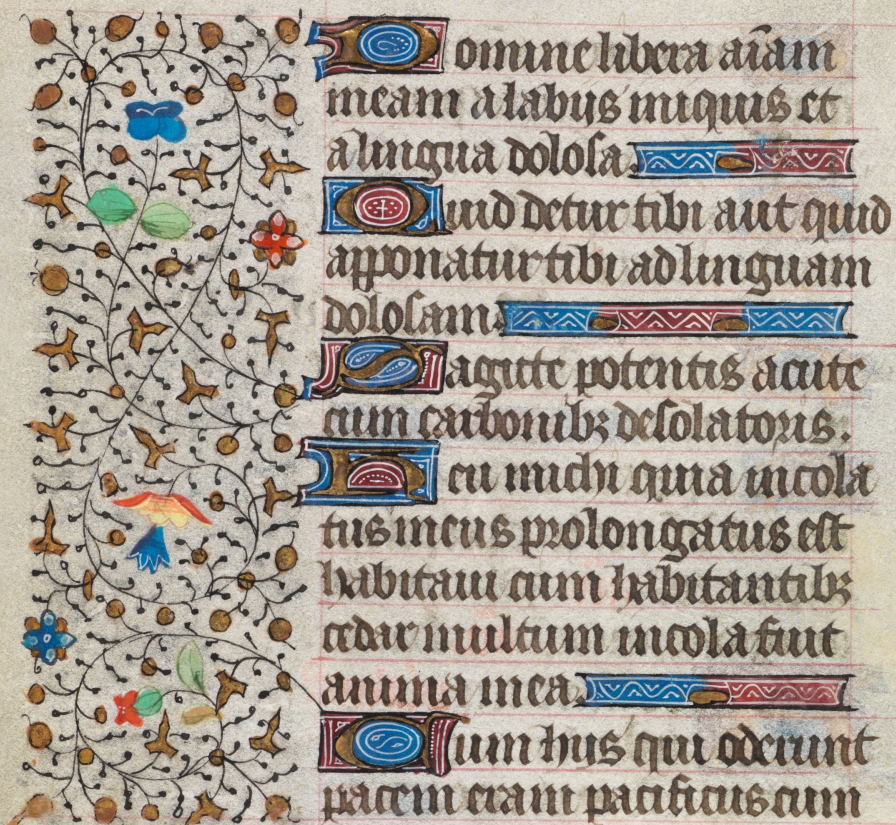 Domine libera aīam
meam a labijs iniquis et
a lingua dolosa
Quid detur tibi aut quid
apponatur tibi ad linguam
dolosam.
Sagitte potentis acute
cum carbonibꝫ desolatoris.
Heu michi quia incola
tus meus prolongatus est
habitaui cum habitantibꝫ
cedar multum incola fuit
anima mea
Cum hijs qui oderunt
pacem eram pacificus cum